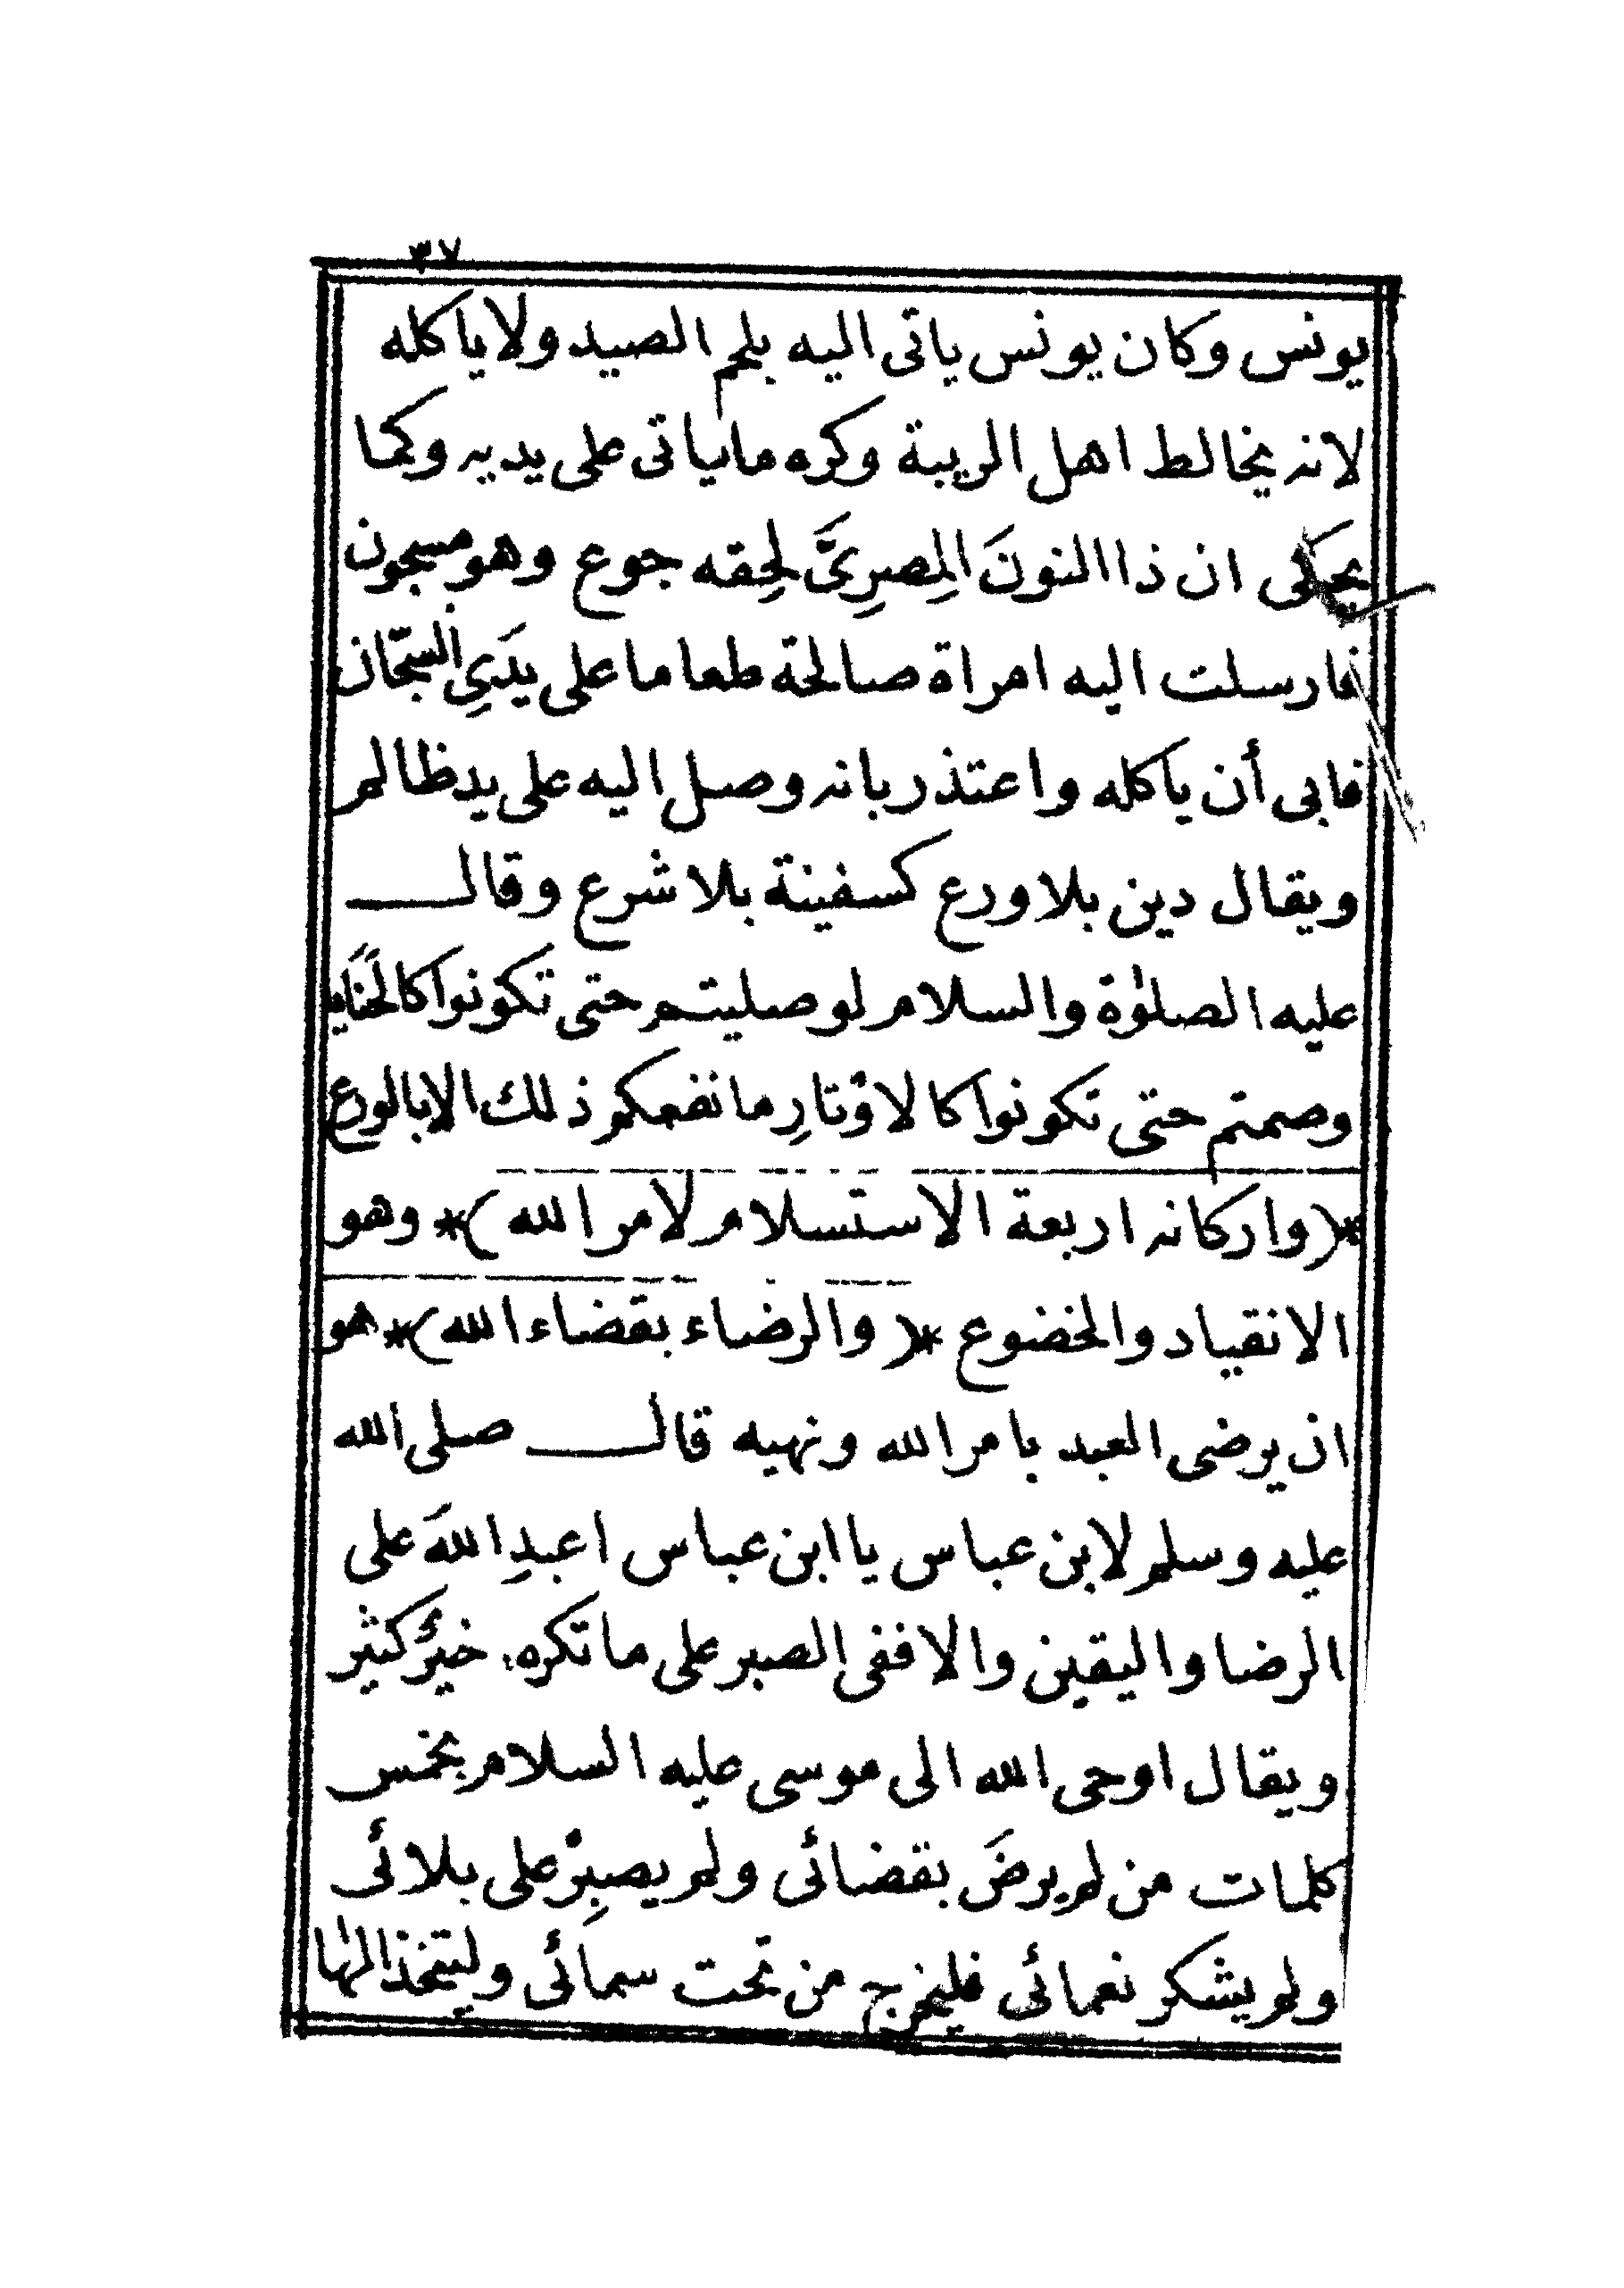 ٣٧
يونس وكان يونس ياتى اليه بلحم الصيد ولا ياكله
لانه يخالط اهل الريبة وكره ما ياتى على يديه وكما
يحكى ان ذا النونَ المِصرِىَّ لحِقه جوع وهو مسجون
فارسلت اليه امراة صالحة طعاما على يدَىِ السجّان
فابى أن ياكله واعتذر بانه وصل اليه على يد ظالم
ويقال دين بلا ورع كسفينة بلا شرع وقال
عليه الصلوٰة والسلام لو صليتم حتى تكونوا كالحَنَايا
وصمتم حتى تكونوا كالاوْتارِ ما نفعكم ذلك الا بالورع
*(واركانه اربعة الاستسلام لامر الله)* وهو
الانقياد والخضوع *(والرضاء بقضاء الله)* هو
ان يرضى العبد بامر الله ونهيه قال صلى الله
عليه وسلم لابن عباس يا ابن عباس اعبدِ اللهَ على
الرضا واليقين والا ففى الصبر على ما تكره خيرٌ كثير
ويقال اوحى الله الى موسى عليه السلام بخمس
كلمات من لم يرضَ بقضائى ولم يصبِرْ على بلائى
ولم يشكر نعمائى فليخرج من تحت سمائى وليتخذ الٰها